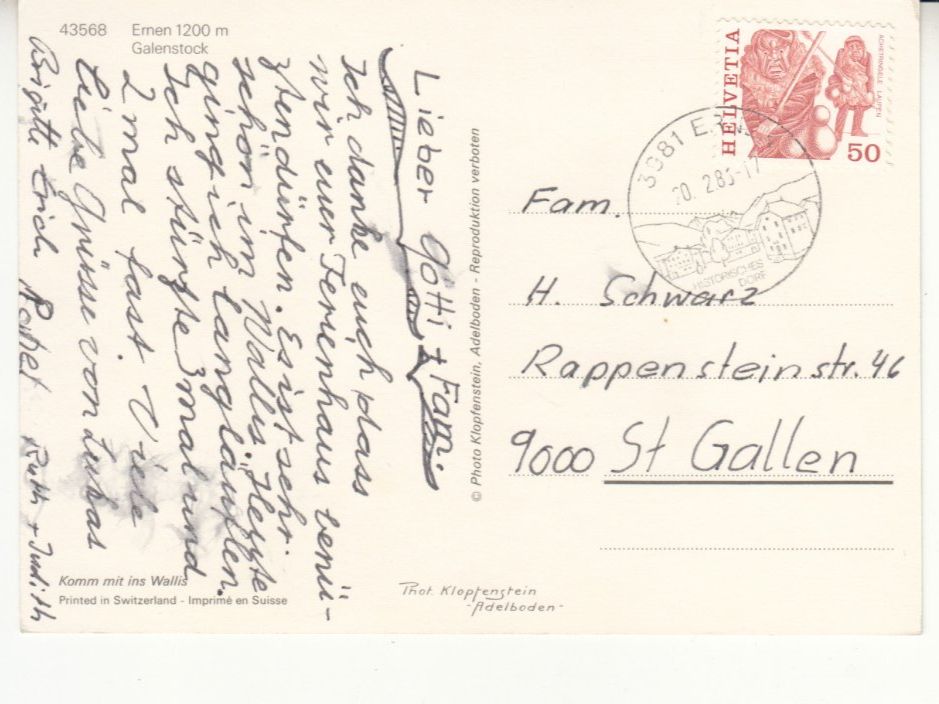 43568 Ernen 1200 m
Galenstock
Lieber Götti + Fam.
Ich danke euch dass
wir euer Ferienhaus benü-
zten dürfen. Es ist sehr
schön im Wallis. Gestern
ging ich langläuflen.
Ich stürzte 3mal und
2 mal fast. Viele
liebe Grüsse von Lukas
Brigitte Erich Ruth + Judith
Komm mit ins Wallis
Printed in Switzerland - Imprimé en Suisse
© Photo Klopfenstein, Adelboden - Reproduktion verboten
Phot. Klopfenstein
-Adelboden-
HELVETIA
ACHETRINGELE LAUPEN
50
20.2.83-17
HISTORISCHES
DORF
Fam.
H. Schwarz
Rappensteinstr. 46
9000 St Gallen